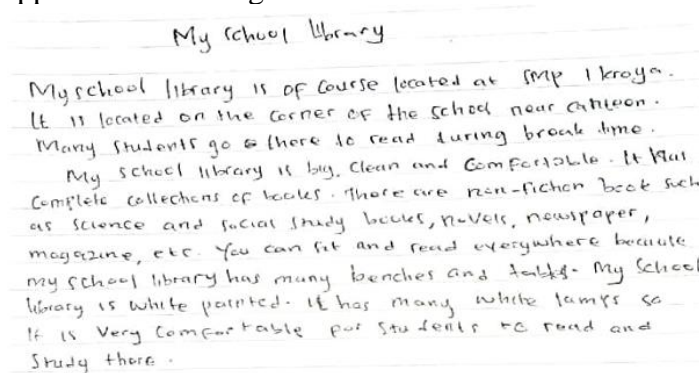 My school library
My school library is of course located at SMP 1 kroya.
It is located on the corner of the school near canteen.
Many students go there to read during break time.
My school library is big, clean and comfortable. It has
complete collections of books. There are non-fiction book such
as science and social study books, novels, newspaper,
magazine, etc. You can sit and read everywhere because
my school library has many benches and tables. My school
library is white painted. it has many white lamps so
it is very comfortable for students to read and
study there.